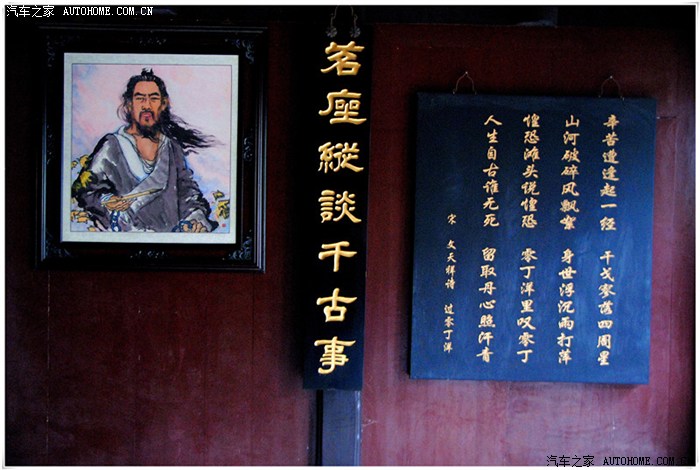 汽车之家 AUTOHOME.COM.CN
茗座縱談千古事
辛苦遭逢起一经 干戈寥落四周星
山河破碎风飘絮 身世浮沉雨打萍
惶恐滩头说惶恐 零丁洋里叹零丁
人生自古谁无死 留取丹心照汗青
宋 文天祥诗 过零丁洋
汽车之家 AUTOHOME.COM.CN